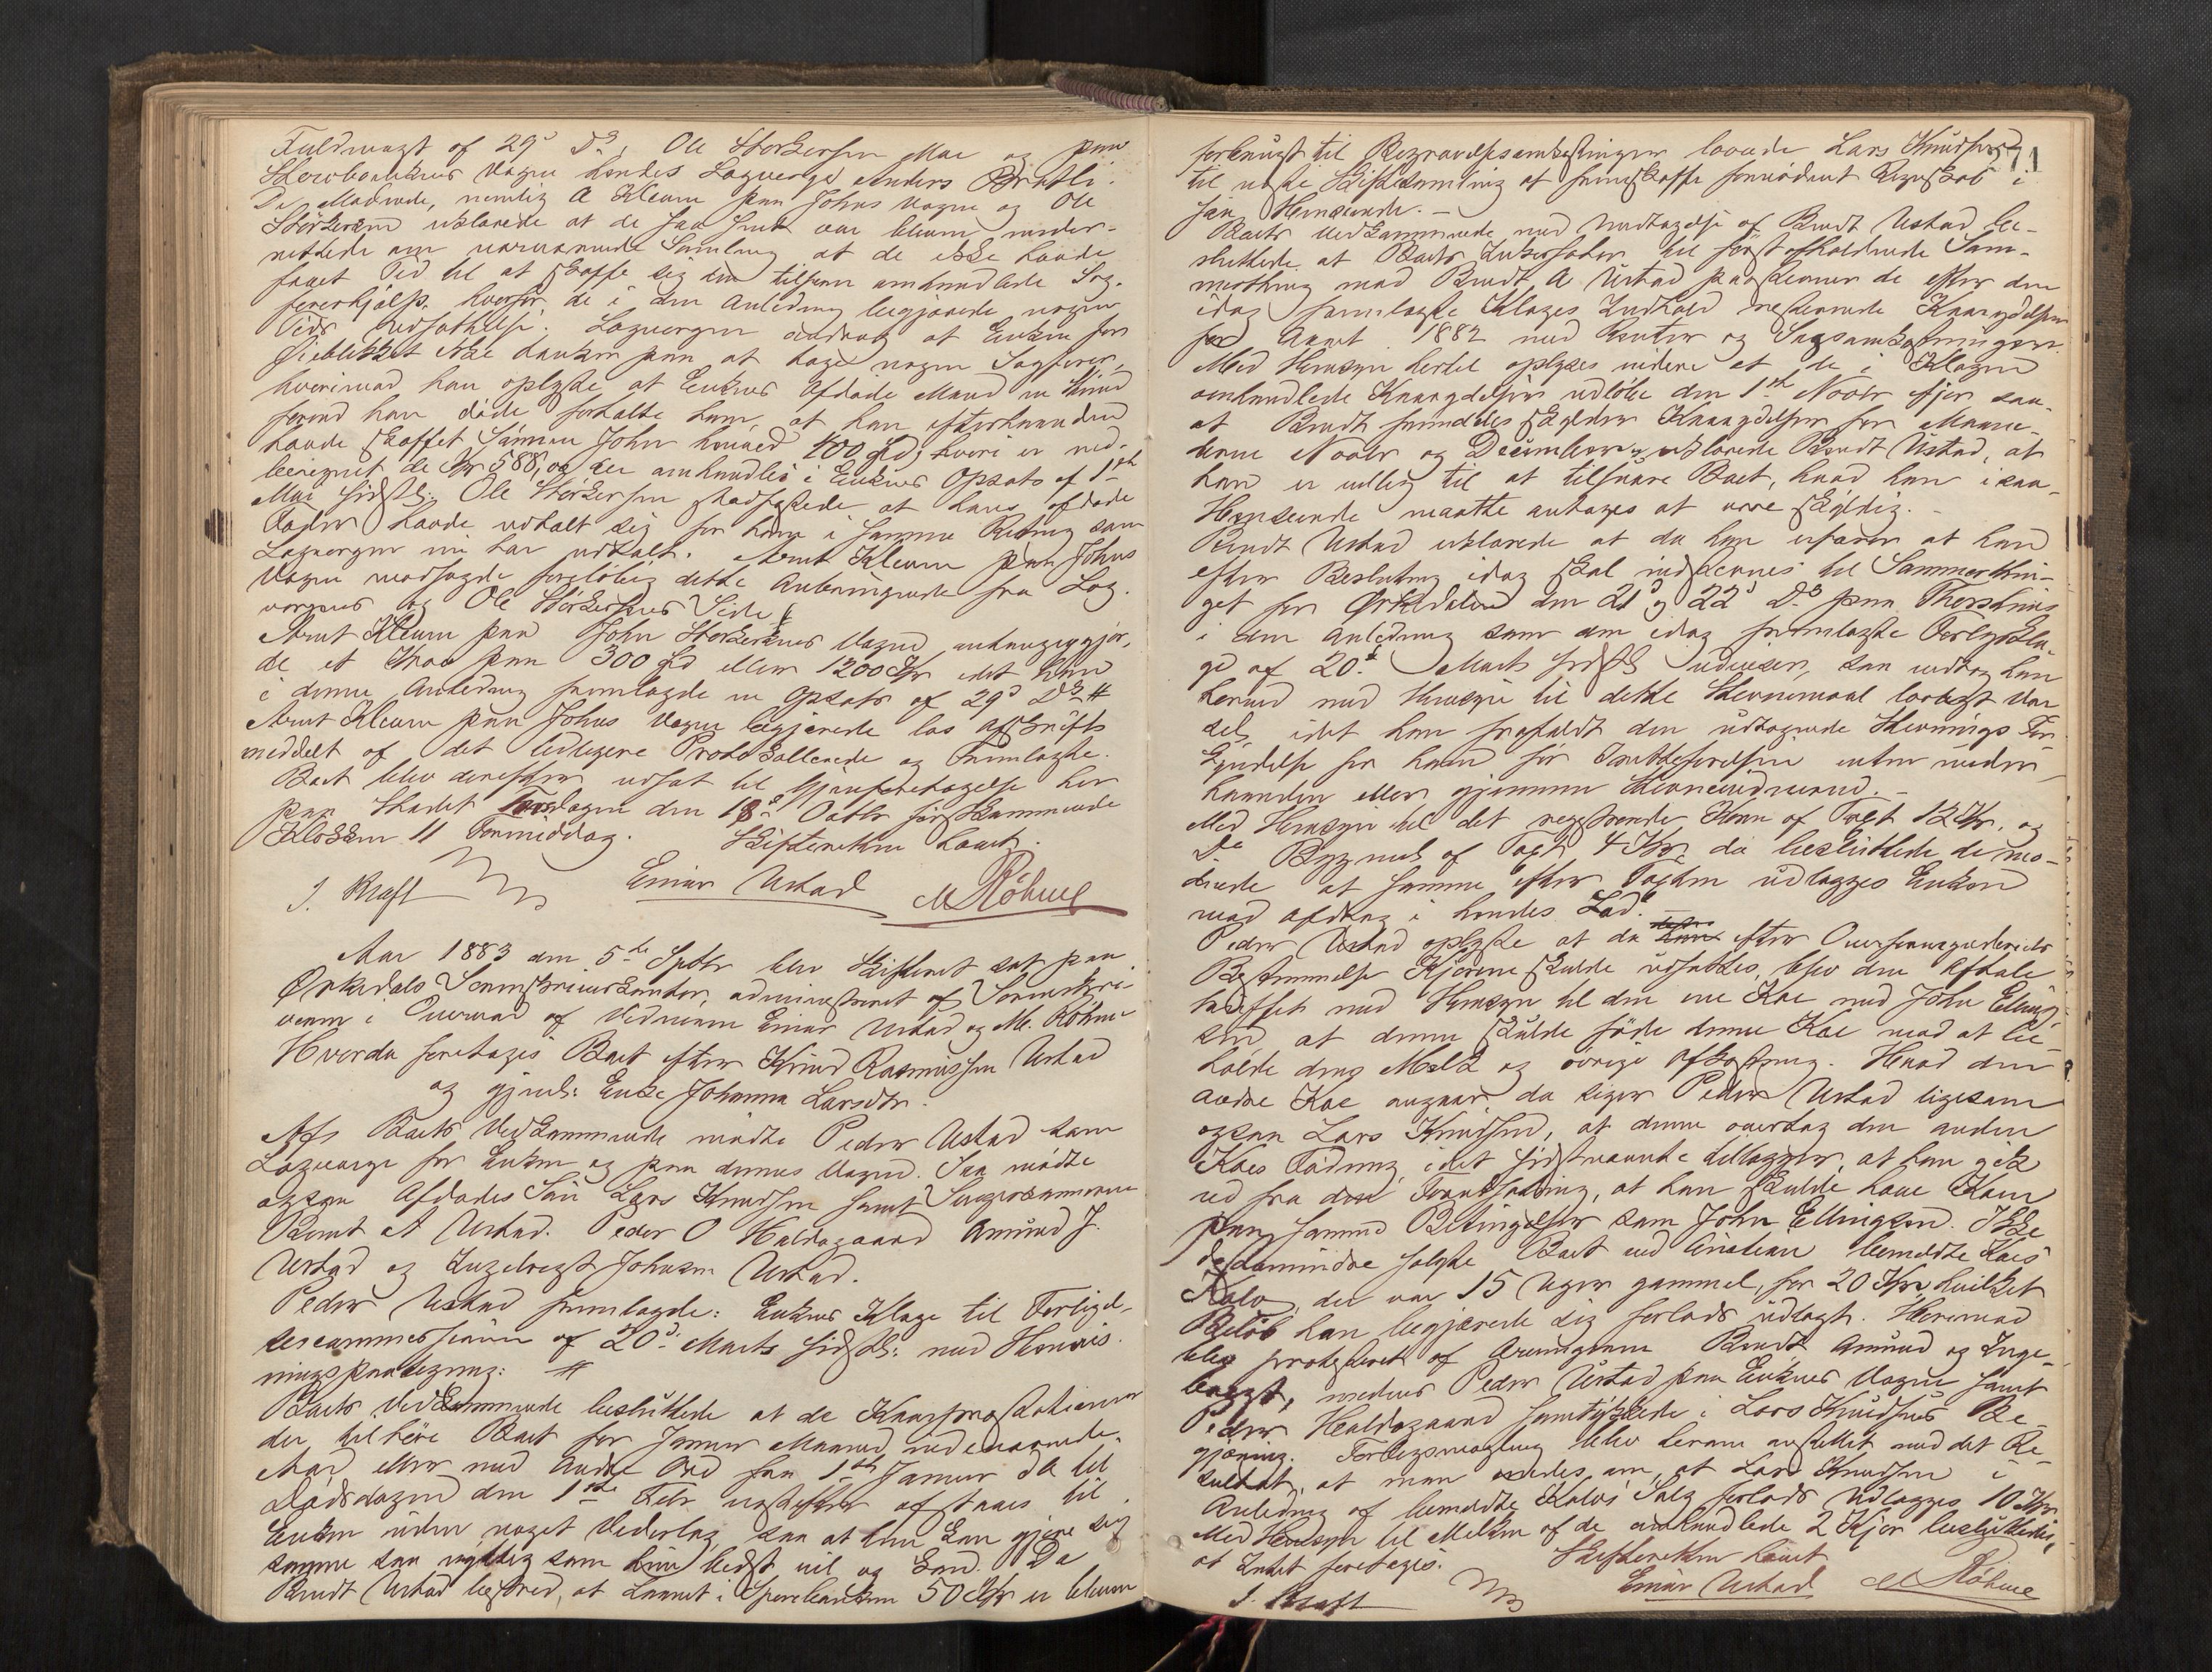 Fuldmagt af 29de Ds, Ole Størkersen Moe og paa
Størkersens Vegne hendes Laugværge Anders
De Mødende, nemlig A Kleven paa Johns Vegne og Ole
Størkersen erklærede at de saa sent var bleven under-
rettede om nærværende Samling at de ikke havde
faaet Tid til at skaffe sig den tilsigtede omhandlede Sag-
førerhjælp, hvorfor de i den Anledning begjærede nogen
Tids Udsættelse. Laugværgen andrag at Enken for
Øieblikket ikke tænker paa at tage nogen Sagfører,
hvorimod han oplyste at Enkens Afdøde Mand en Stund
forend han døde fortalte ham, at han efterhaanden
havde skaffet Sønnen John henved 400 Spd, hvori er med-
beregnet de Kr 588,00 der omhandles i Enkens Opsats af 1ste
Mai sidstl. Ole Størkersen stadfæstede at hans afdøde
Fader havde udtalt sig for ham i samme Retning som
Laugværgen nu har udtalt. Arnt Kleven paa Johns
Vegne modsagde foreløbig dette Anbringende fra Laug-
værgens og Ole Størkersens Side.
Arnt Kleven paa John Størkersens Vegne anhængiggjor-
de et Krav paa 300 Spd eller 1200 Kr idet han
i denne Anledning fremlagde en Opsats af 29de Ds #
Arnt Kleven paa Johns Vegne begjærede sig Afskrift
meddelt af det tidligere Protokollerede og Fremlagte.
Boet blev derefter udsat til Gjenforetagelse her
paa Stedet Torsdagen den 18de Octbr førstkommende
Klokken 11 Formiddag. Skifteretten hævet.
J. Kraft Einar Ustad M Røhme
Aar 1883 den 5te Septbr blev Skifteret sat paa
Ørkedals Sorenskriverkontor, administreret af Sorenskri-
veren i Overvær af Vidnerne Einar Ustad og M. Røhme
Hvorda foretages Boet efter Knud Rasmussen Ustad
og gjenl: Enke Johanna Larsdtr.
Af Boets Vedkommende mødte Peder Ustad som
Laugværge for Enken og paa dennes Vegne. Saa mødte
ogsaa Afdødes Søn Lars Knudsen samt Svigersønnerne
Berndt A Ustad. Peder O Haldogaard Amund J.
Ustad og Ingebregt Johnsen Ustad.
Peder Ustad fremlagde: Enkens Klage til Forligel-
sescommissionen af 20de Marts sidstl: med Henvis-
ningspaategning: #
Boets Vedkommende besluttede at de Kaarpræstationer
der tilhøre Boet for Januar Maaned indeværende
Aar eller med andre Ord fra 1ste Januar da til
Dødsdagen den 1ste Febr næstefter afstaaes til
Enken uden noget Vederlag saa at hun kan gjøre sig
samme saa nyttig som hun bedst vil og kan. Da
Berndt Ustad bestred, at Laanet i Sparebanken 50 Kr er bleven
271
forbrugt til Begravelsesomkostninger lovede Lars Knudsen
til næste Skiftesamling at fremskaffe fornødent Regnskab i
saa Henseende.-
Boets Vedkommende med Undtagelse af Berndt Ustad be-
sluttede at Boets Inkassator til først afholdende Sam-
mething mod Berndt A Ustad paastævner de efter den
idag fremlagte Klages Indhold resterende Kaarydelser
for Aaret 1882 med Renter og Sagsomkostninger.
Med Hensyn hertil oplyses videre at de i Klagen
omhandlede Kaarydelser udløbe den 1ste Novbr ifjor saa
at Berndt fremdeles skylder Kaarydelser for Maane-
derne Novbr og December, erklærede Berndt Ustad, at
han er villig til at tilsvare Boet, hvad han i saa-
Henseende maatte antages at være skyldig.-
Berndt Ustad erklærede at da han erfarer at han
efter Beslutning idag skal indstævnes til Sommerthin-
get for Ørkedalen den 21de og 22de Ds paa Thorshus
i den Anledning som den idag fremlagte Forligskla-
ge af 20de Marts sidstl udviser, saa vedtog han
herved med Hensyn til dette Stævnemaal lovligt Var
sel, idet han frafaldt den udtagende Stevnings For-
kyndelse for ham før Inkaldelsen enten under
haanden eller gjennem Stevnevidnerne.-
Med Hensyn til det resterende Korn af Taxt 12 Kr. og
Do Bygmel af Taxt 4 Kr. da besluttede de mø-
dende at samme efter Taxten udlægges Enken
mod Afdrag i hendes Lod.
Peder Ustad oplyste at da efter Overformynderiets
Bestemmelse Kjørene skulde udsættes, blev den Aftale
truffet med Hensyn til den ene Ko med John Elling-
sen at denne skulde føde denne Ko mod at be-
holde dens Melk og øvrige Afkastning. Hvad den
anden Ko angaar, da siger Peder Ustad ligesom
ogsaa Lars Knudsen, at denne overtog den anden
Koes Fødning idet sidstnævnte tillægger, at han gik
ud fra den Forudsætning, at han skulde have Koen
paa samme Betingelser som John Ellingsen. Ikke
destomindre solgte Boet ved Auction bemeldte Koes
Kalv, der var 15 Uger gammel, for 20 Kr, hvilket
Beløb han begjærede sig forlods udlagt. Herimod
blev protesteret af Arvingerne Berndt, Amund og Inge-
bregt, medens Peder Ustad paa Enkens Vegne samt
Peder Haldogaard samtykkede i Lars Knudsens Be-
gjæring. Forligsmægling blev derom anstillet med det Re-
sultat, at man enedes om, at Lars Knudsen i
Anledning af bemeldte Kalvs Salg forlods udlægges 10 Kr
Med Hensyn til Melken af de omhandlede 2 Kjør besluttedes,
at Intet foretages. Skifteretten hævet
J. Kraft Einar Ustad M Røhme